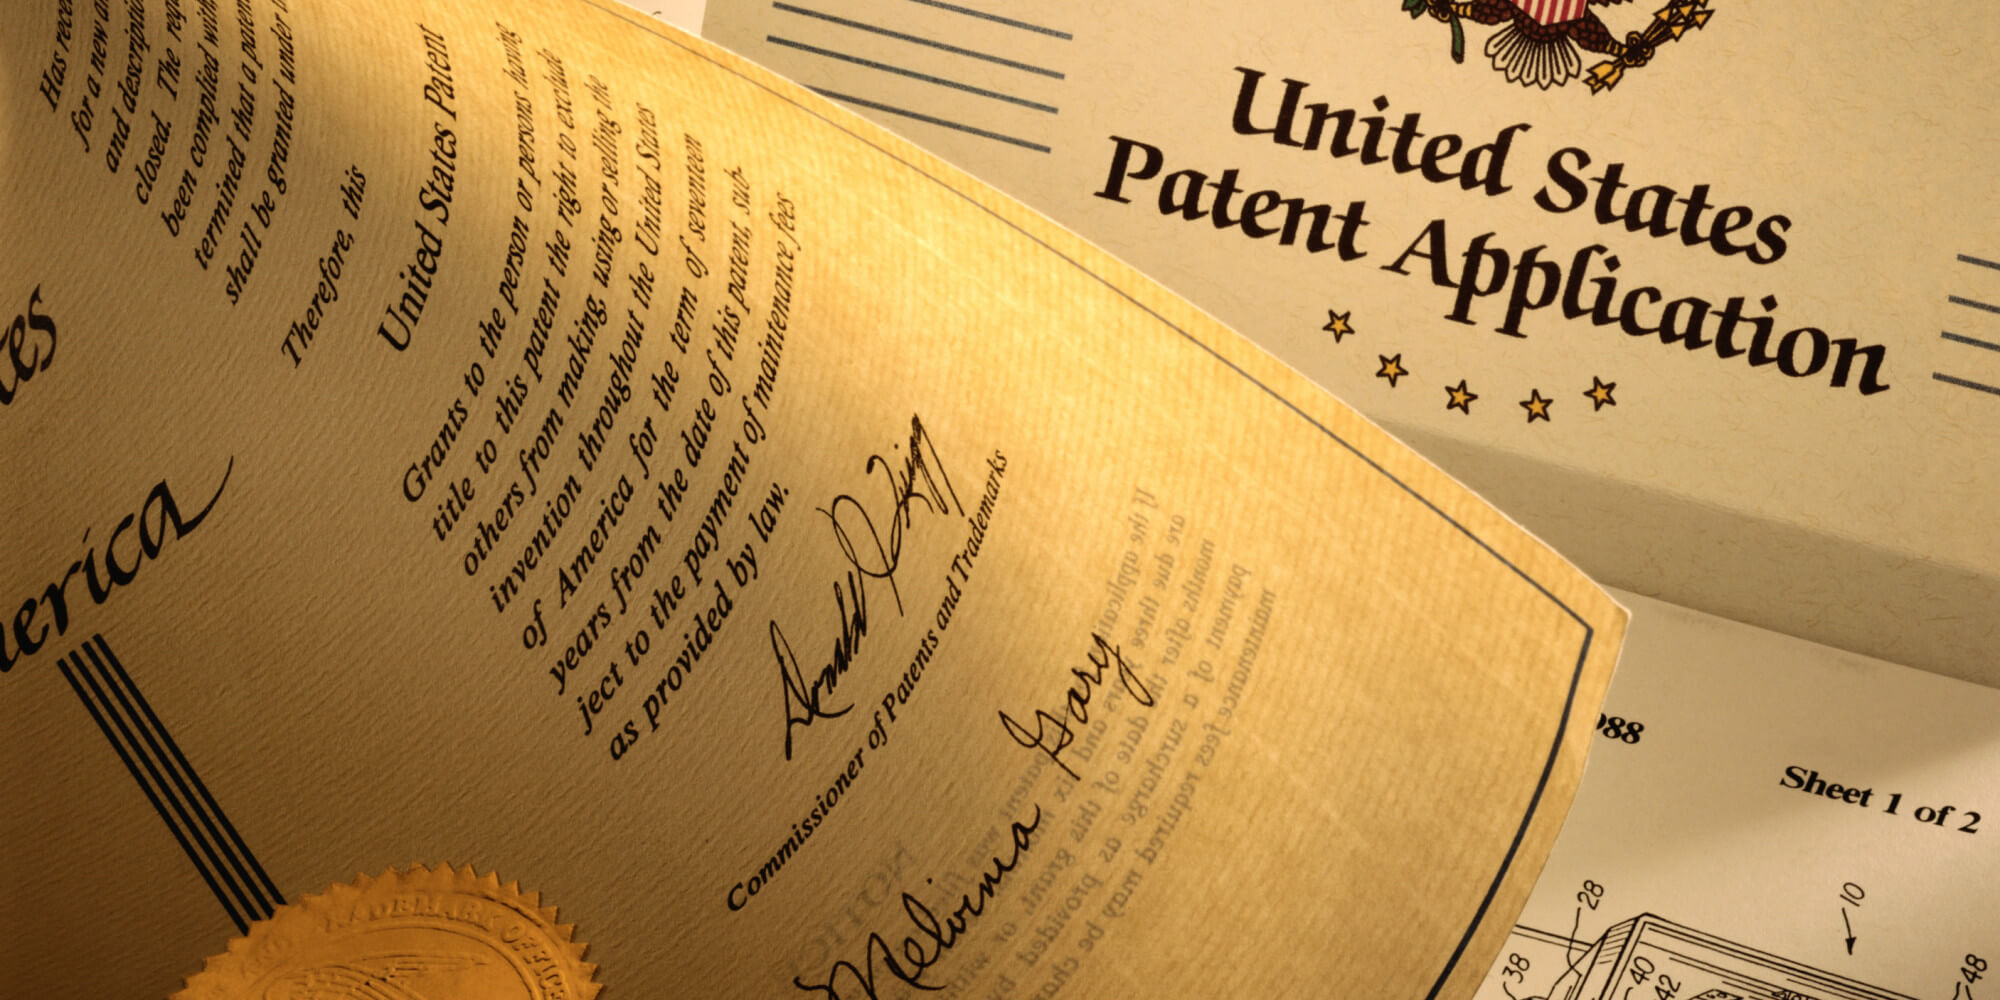 Has rece
for a new an
and description
closed. The requ
been complied with
termined that a patent
shall be granted under
Therefore, this
United States Patent
Grants to the person or persons having
title to this patent the right to exclude
others from making, using or selling the
invention throughout the United States
of America for the term of seventeen
years from the date of this patent, sub-
ject to the payment of maintenance fees
as provided by law.
Donald J Quigg
Commissioner of Patents and Trademarks
Melvinia Gary
tes
erica
RADEMARK OFFICE
United States
Patent Application
988
Sheet 1 of 2
28
10
38
40
42
48